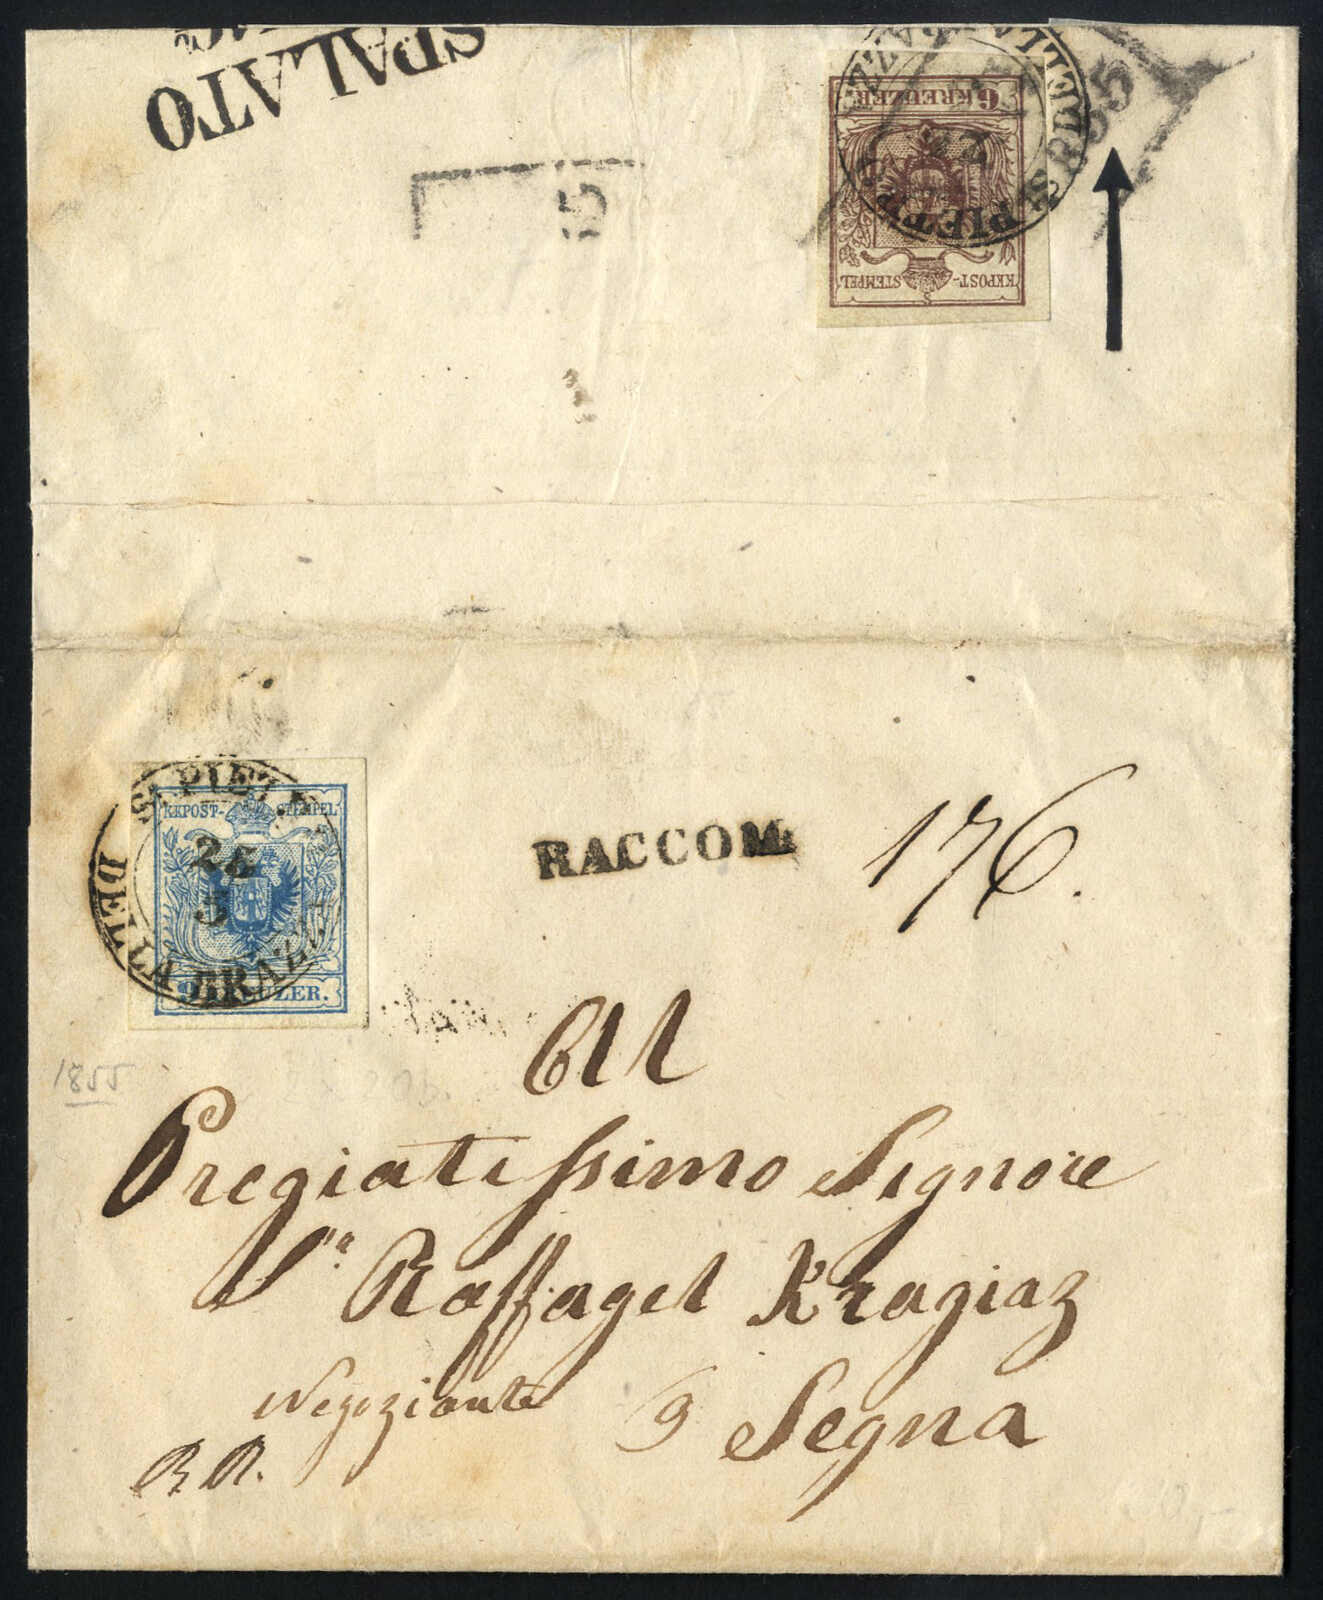 SPALATO
6 KREUZER
KKPOST-STEMPEL
55
S. PIET
DELLA BRAZZA
KKPOST-STEMPEL
25
5
9 KREUZER.
RACCOM.
176.
1855
All
Pregiatissimo Signore
Sr. Raffael Kragiaz
Negoziante
Segna
R R.